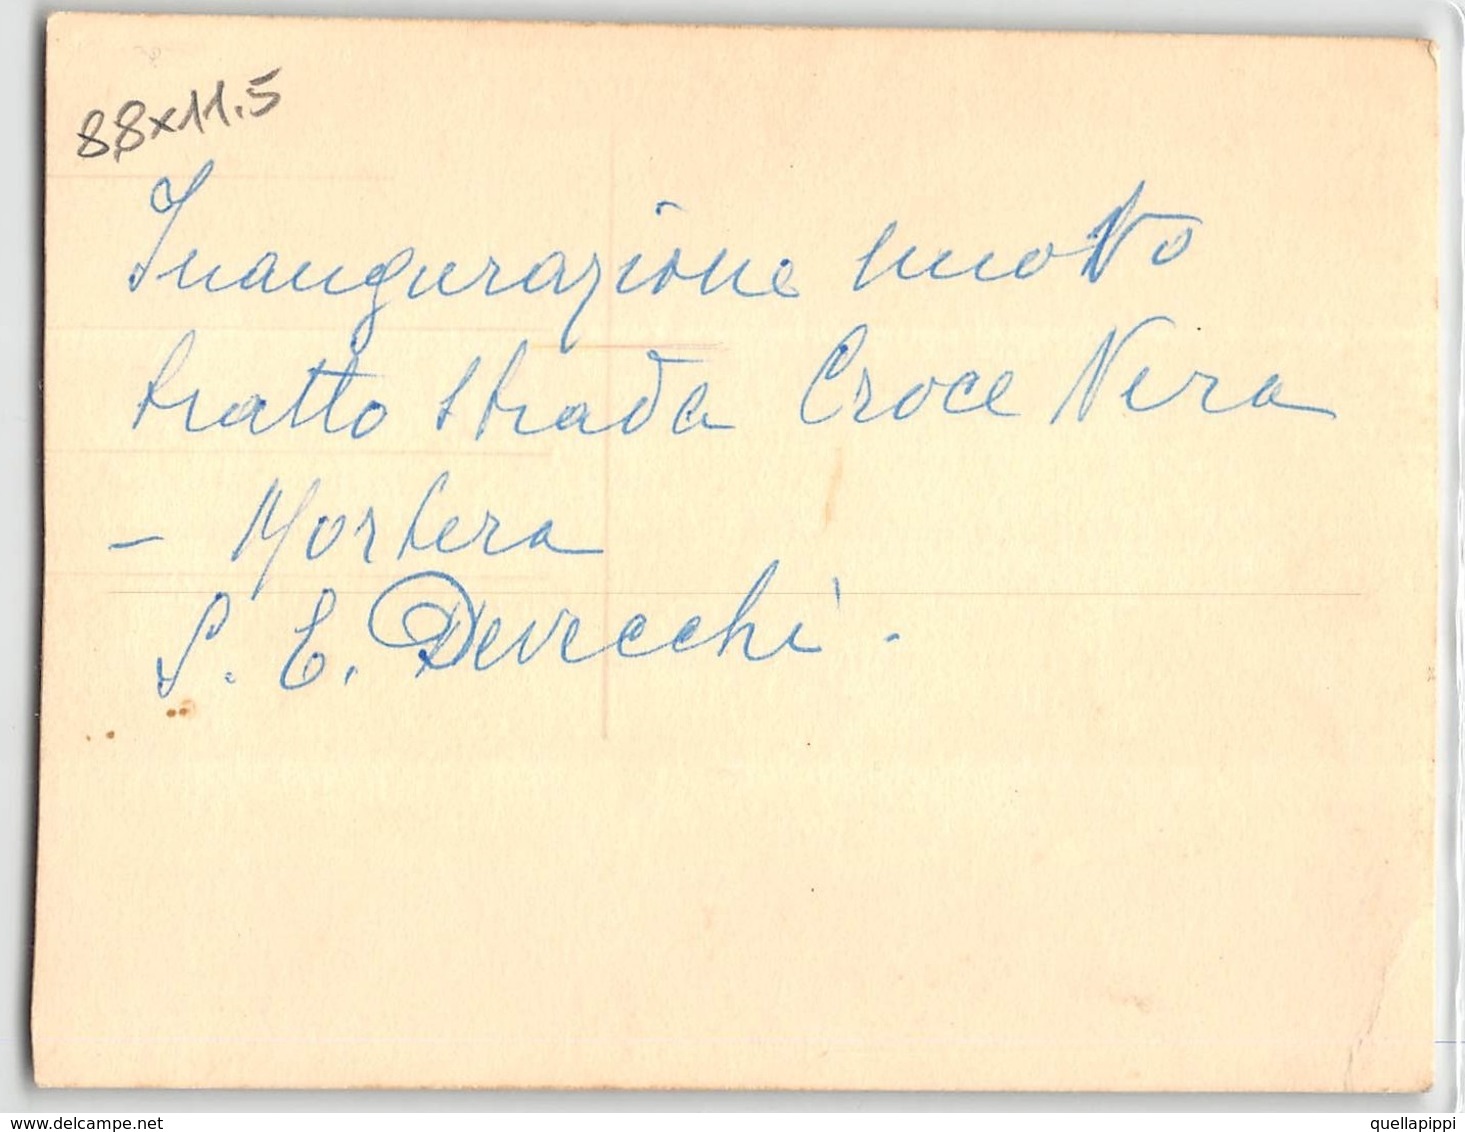 8,8x11.5
Inaugurazione nuovo
tratto strada Croce Nera
- Mortera
S. E. Devecchi.
delcampe.net
quellapippi